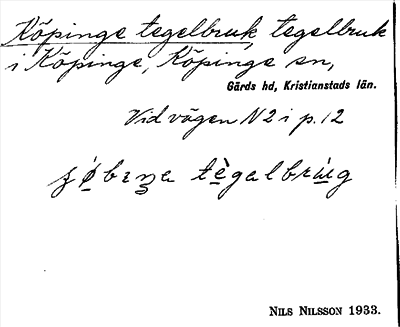 Köpinge tegelbruk, tegelbruk
i Köpinge, Köpinge sn,
Gärds hd, Kristianstads län.
Vid vägen N2 i p. 12
tègalbrúg
NILS NILSSON 1933.